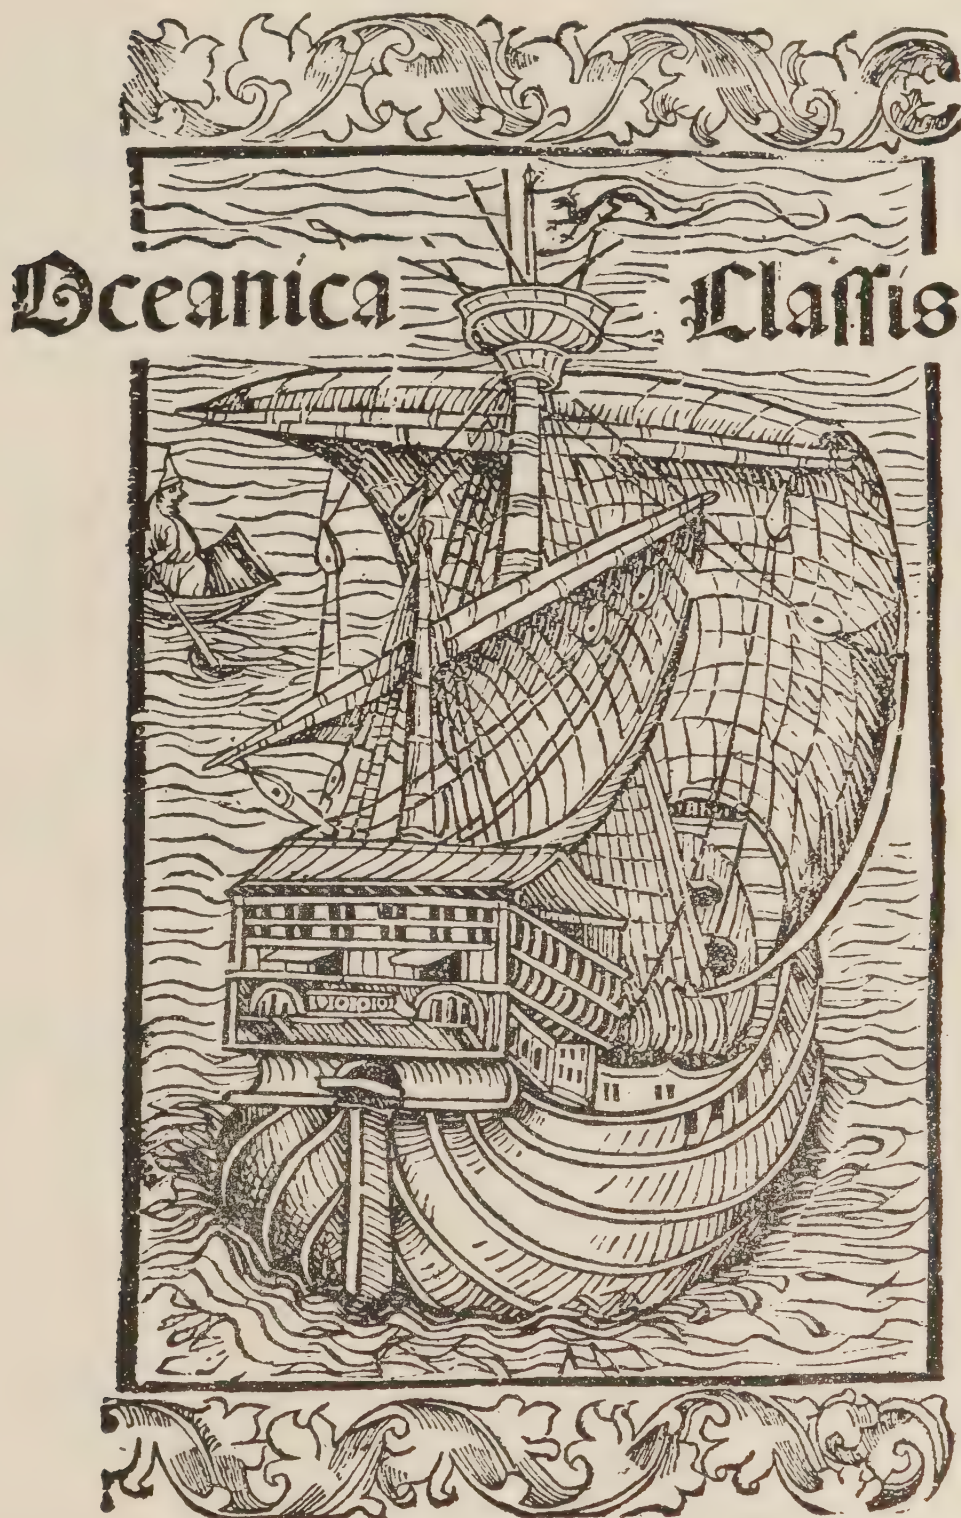 Oceanica Claſſis